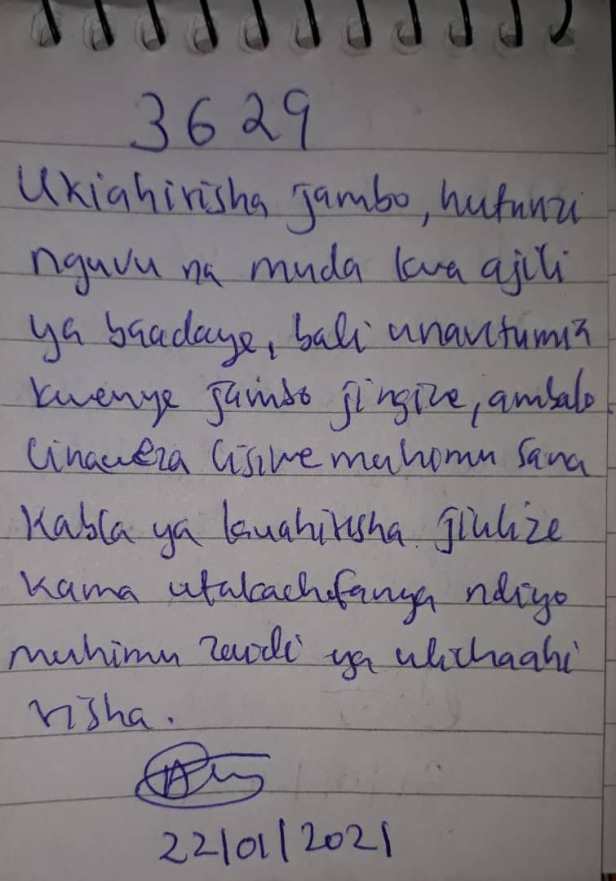 3629
Ukiahirisha jambo, hutunzi
nguvu na muda kwa ajili
ya baadaye, bali unavitumia
kwenye jambo jingine, ambalo
linaweza lisiwe muhimu sana
Kabla ya kuahirisha jiulize
kama utakachofanya ndiyo
muhimu zaidi ya ulichoahi
risha.
22/01/2021